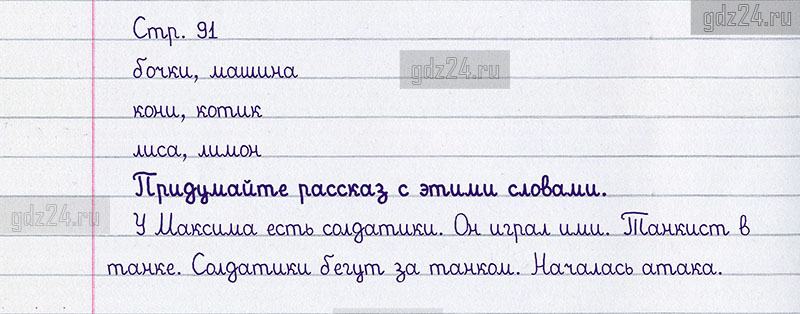 gdz24.ru
Стр. 91
бочки, машина
gdz24.ru
кони, котик
лиса, лимон
Придумайте рассказ с этими словами.
gdz24.ru
У Максима есть солдатики. Он играл ими. Танкист в
танке. Солдатики бегут за танком. Началась атака.